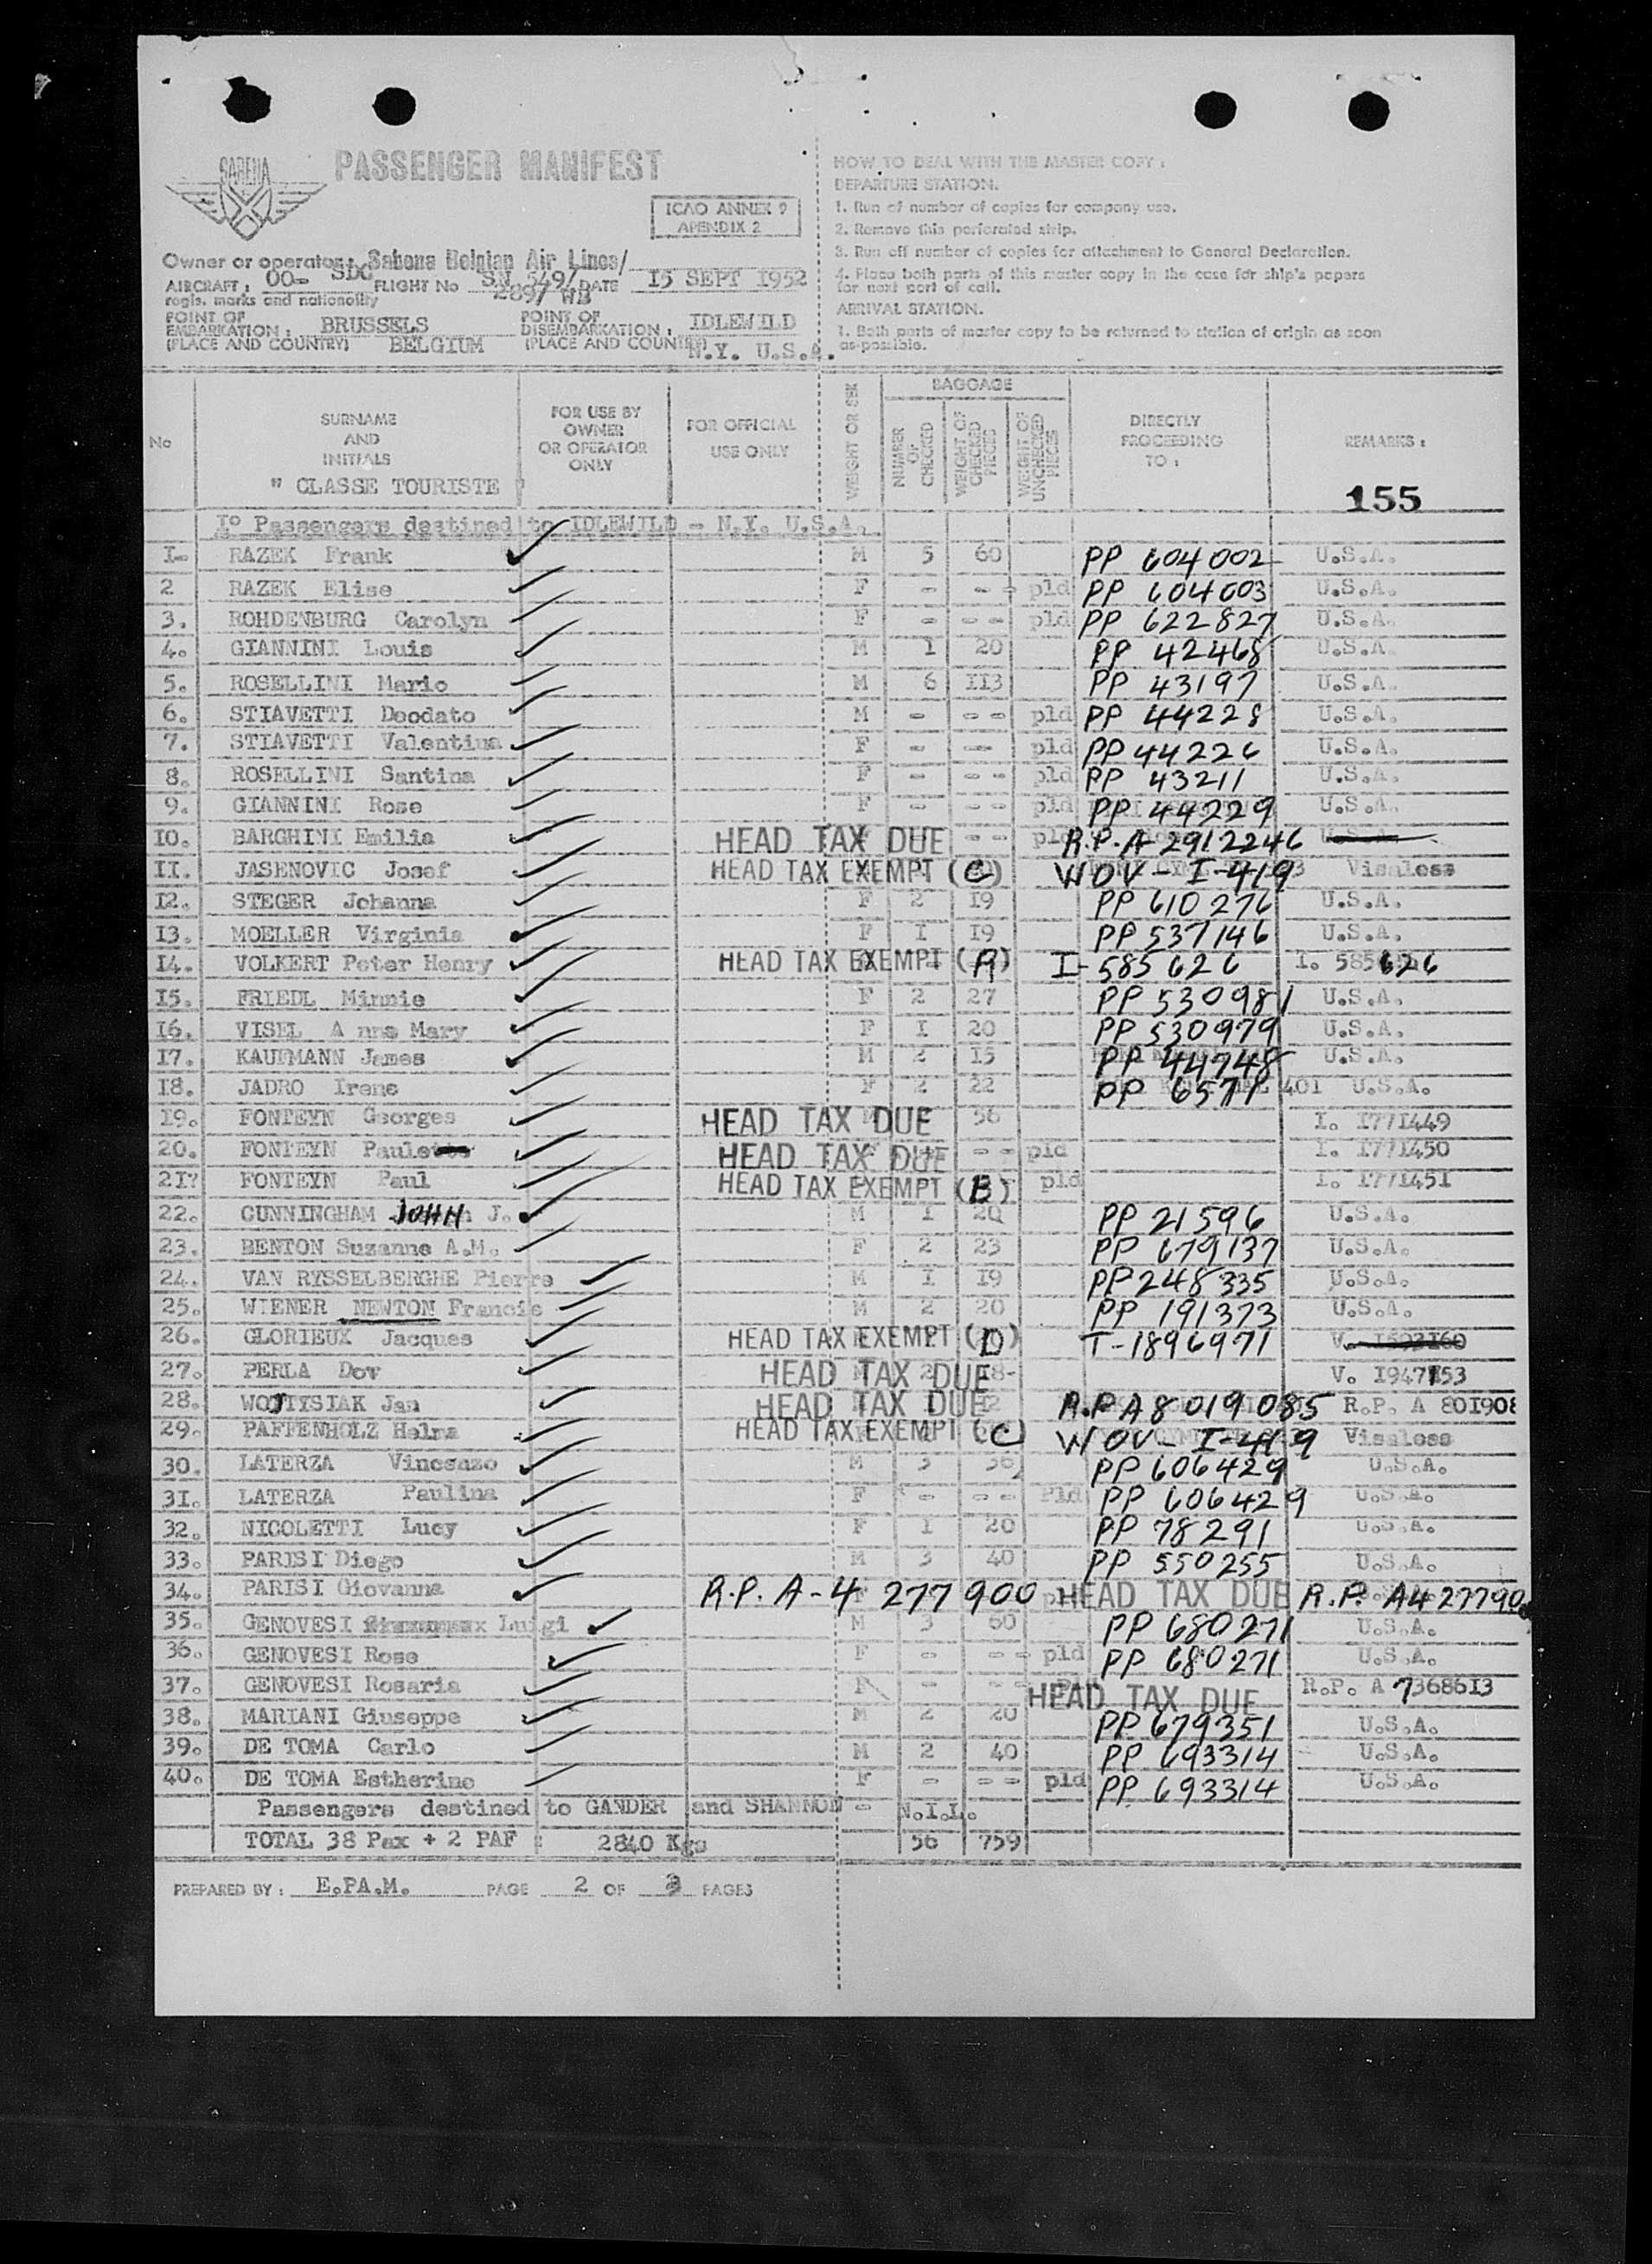 SABENA
PASSENGER MANIFEST
ICAO ANNEX 9
APENDIX 2
Owner or operator: Sabena Belgian Air Lines/
AIRCRAFT: OO- SDC FLIGHT No SN 549/ DATE 15 SEPT 1952
regis. marks and nationality 289/ WB
POINT OF EMBARKATION: BRUSSELS POINT OF DISEMBARKATION: IDLEWILD
(PLACE AND COUNTRY) BELGIUM (PLACE AND COUNTRY) N.Y. U.S.A.
HOW TO DEAL WITH THE MASTER COPY:
DEPARTURE STATION.
1. Run of number of copies for company use.
2. Remove this perforated strip.
3. Run off number of copies for attachment to General Declaration.
4. Place both parts of this master copy in the case for ship's papers
for next port of call.
ARRIVAL STATION.
1. Both parts of master copy to be returned to station of origin as soon
as possible.
No SURNAME AND INITIALS FOR USE BY OWNER OR OPERATOR ONLY FOR OFFICIAL USE ONLY WEIGHT OR SEX BAGGAGE NUMBER OF CHECKED WEIGHT OF CHECKED PIECES WEIGHT OF UNCHECKED PIECES DIRECTLY PROCEEDING TO: REMARKS:
" CLASSE TOURISTE "
155
I° Passengers destined to IDLEWILD - N.Y. U.S.A.
I- RAZEK Frank M 5 60 PP 604002 U.S.A.
2 RAZEK Elise F - - - pld PP 604003 U.S.A.
3. ROHDENBURG Carolyn F - - - - pld PP 622827 U.S.A.
4. GIANNINI Louis M I 20 PP 42468 U.S.A.
5. ROSELLINI Mario M 6 II3 PP 43197 U.S.A.
6. STIAVETTI Deodato M - - - pld PP 44228 U.S.A.
7. STIAVETTI Valentina F - -- pld PP 44226 U.S.A.
8. ROSELLINI Santina F - - - pld PP 43211 U.S.A.
9. GIANNINI Rose F - - - - pld PP 44229 U.S.A.
IO. BARGHINI Emilia HEAD TAX DUE - - pld R.P. A 2912246 U.S.A.
II. JASENOVIC Josef HEAD TAX EXEMPT (C) WOV - I-419 Visaless
I2. STEGER Johanna F 2 I9 PP 610276 U.S.A.
I3. MOELLER Virginia F I I9 PP 537146 U.S.A.
I4. VOLKERT Peter Henry HEAD TAX EXEMPT (A) I-585626 I. 585626
I5. FRIEDL Minnie F 2 27 PP 530981 U.S.A.
I6. VISEL A nna Mary F I 20 PP 530979 U.S.A.
I7. KAUFMANN James M 2 I5 PP 44748 U.S.A.
I8. JADRO Irene F 2 22 PP 6571 401 U.S.A.
I9. FONTEYN Georges HEAD TAX DUE 56 I. I77I449
20. FONTEYN Paulette HEAD TAX DUE - - pld I. I77I450
21? FONTEYN Paul HEAD TAX EXEMPT (B) pld I. I77I45I
22. CUNNINGHAM JOHN J. M I 20 PP 21596 U.S.A.
23. BENTON Suzanne A.M. F 2 23 PP 679137 U.S.A.
24. VAN RYSSELBERGHE Pierre M I I9 PP 248335 U.S.A.
25. WIENER NEWTON Francis M 2 20 PP 191373 U.S.A.
26. GLORIEUX Jacques HEAD TAX EXEMPT (D) T-1896971 V. I503I60
27. PERLA Dov HEAD TAX DUE 2 I8- V. I947153
28. WOJTYSIAK Jan HEAD TAX DUE R.P A 8019085 R.P. A 80I908
29. PAFFENHOLZ Helma HEAD TAX EXEMPT (C) WOV - I-419 Visaless
30. LATERZA Vincenzo M 3 56 PP 606429 U.S.A.
3I. LATERZA Paulina F - - - - Pld PP 606429 U.S.A.
32. NICOLETTI Lucy F I 20 PP 78291 U.S.A.
33. PARISI Diego M 3 40 PP 550255 U.S.A.
34. PARISI Giovanna R.P. A-4 277 900 pld HEAD TAX DUE R.P. A4277900
35. GENOVESI Luigi M 3 60 PP 680271 U.S.A.
36. GENOVESI Rose F - - - pld PP 680271 U.S.A.
37. GENOVESI Rosaria F - - - HEAD TAX DUE R.P. A 73686I3
38. MARIANI Giuseppe M 2 20 PP 679351 U.S.A.
39. DE TOMA Carlo M 2 40 PP 693314 U.S.A.
40. DE TOMA Estherine F - - - pld PP 693314 U.S.A.
Passengers destined to GANDER and SHANNON - N.I.L.
TOTAL 38 Pax + 2 PAF : 2840 Kgs 56 759
PREPARED BY: E.PA.M. PAGE 2 OF 3 PAGES